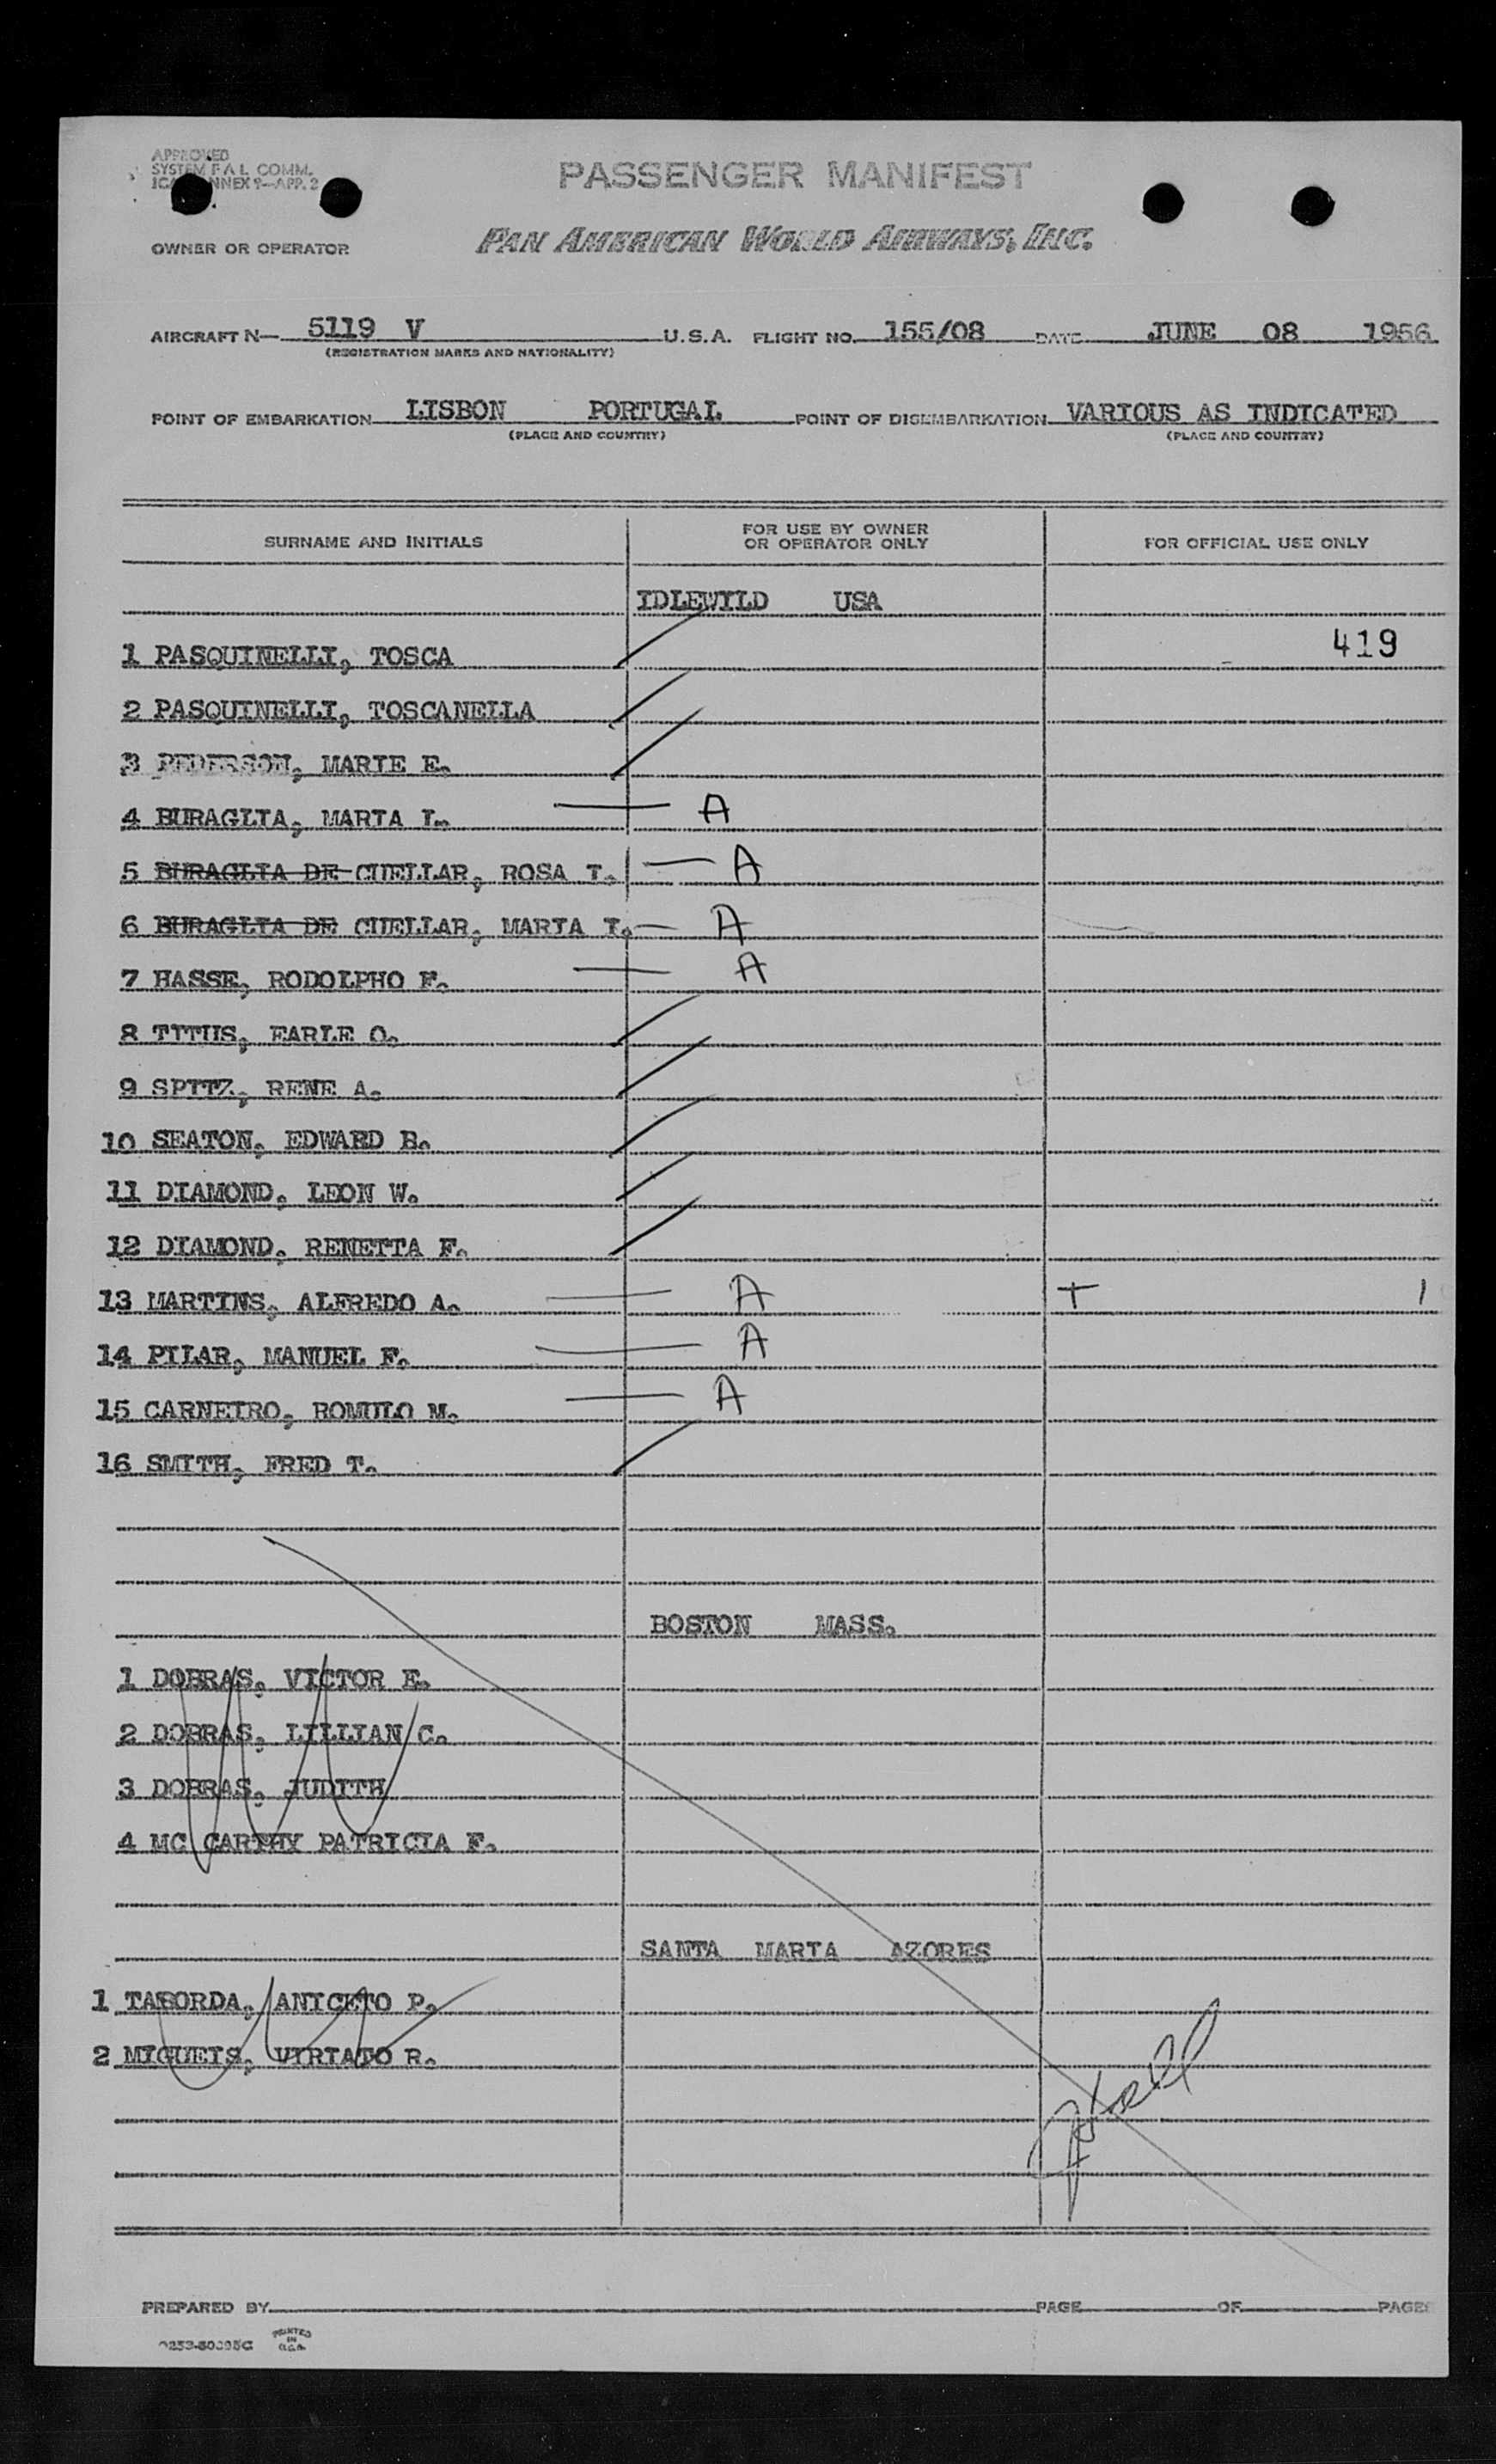 APPROVED
SYSTEM F A L COMM.
ANNEX 9—APP. 2
PASSENGER MANIFEST
OWNER OR OPERATOR
PAN AMERICAN WORLD AIRWAYS, INC.
AIRCRAFT N— 5119 V U.S.A. FLIGHT NO. 155/08 DATE JUNE 08 1956
(REGISTRATION MARKS AND NATIONALITY)
POINT OF EMBARKATION LISBON PORTUGAL POINT OF DISEMBARKATION VARIOUS AS INDICATED
(PLACE AND COUNTRY) (PLACE AND COUNTRY)
SURNAME AND INITIALS FOR USE BY OWNER OR OPERATOR ONLY FOR OFFICIAL USE ONLY
IDLEWILD USA
1 PASQUINELLI, TOSCA 419
2 PASQUINELLI, TOSCANELLA
3 PEDERSON, MARIE E.
4 BURAGLIA, MARTA I. — A
5 BURAGLIA DE CUELLAR, ROSA T. — A
6 BURAGLIA DE CUELLAR, MARIA I. — A
7 HASSE, RODOLPHO F. — A
8 TITUS, EARLE O.
9 SPITZ, RENE A.
10 SEATON, EDWARD B.
11 DIAMOND, LEON W.
12 DIAMOND, RENETTA F.
13 MARTINS, ALFREDO A. — A + 1
14 PILAR, MANUEL F. — A
15 CARNEIRO, ROMULO M. — A
16 SMITH, FRED T.
BOSTON MASS.
1 DOBRAS, VICTOR E.
2 DOBRAS, LILLIAN C.
3 DOBRAS, JUDITH
4 MC CARTHY PATRICIA F.
SANTA MARIA AZORES
1 TABORDA, ANICETO P.
2 MIGUEIS, VIRIATO R.
PREPARED BY PAGE OF PAGES
PRINTED
IN
U.S.A.